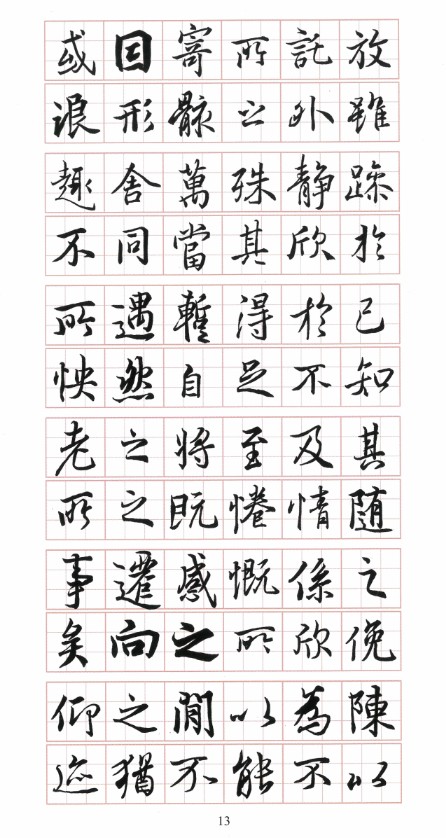 或因寄所託放
浪形骸之外雖
趣舍萬殊静躁
不同當其欣於
所遇暫得於己
怏然自足不知
老之將至及其
所之既惓情随
事遷感慨係之
矣向之所欣俛
仰之閒以為陳
迹猶不能不以
13